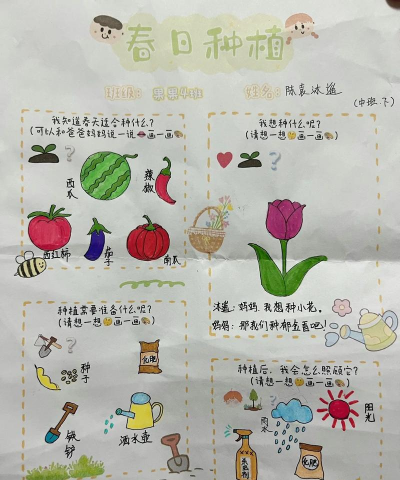 春日种植
班级:果果4班 姓名:陈袁沐遥
(中班.下)
我知道春天适合种什么?
(可以和爸爸妈妈说一说👄画一画🎨)
?
西瓜
辣椒
西红柿
茄子
南瓜
我想种什么呢?
(请想一想🤔画一画🎨)
?
沐遥:妈妈.我想种小花。
妈妈:那我们种郁金香吧!
种植需要准备什么呢?
(请想一想🤔画一画🎨)
?
种子
化肥
铁铲
洒水壶
种植后,我会怎么照顾它?
(请想一想🤔画一画🎨)
?
雨水
阳光
杀虫剂
化肥